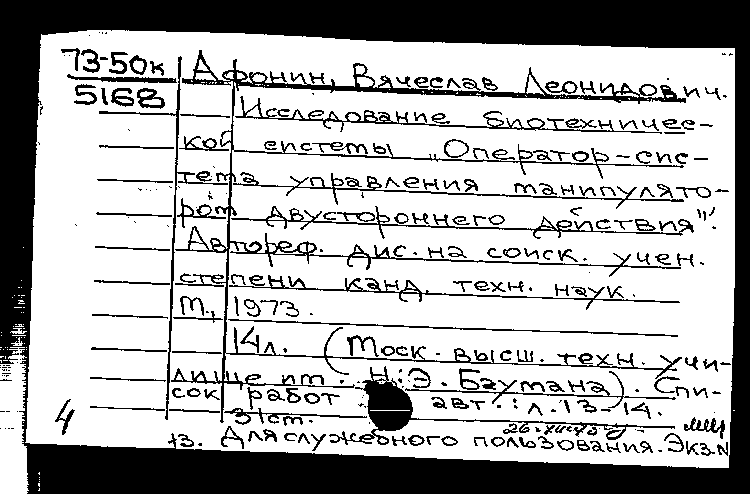 73-50к
5168
Афонин, Вячеслав Леонидович.
Исследование биотехничес-
кой системы „Оператор-сис-
тема управления манипулято-
ром двустороннего действия".
Автореф. дис. на соиск. учен.
степени канд. техн. наук.
М., 1973.
14л. (Моск. высш. техн. учи-
лище им. Н.Э. Баумана). Спи-
сок работ авт.: л. 13-14.
31ст.
4
13. Для служебного пользования. Экз.N